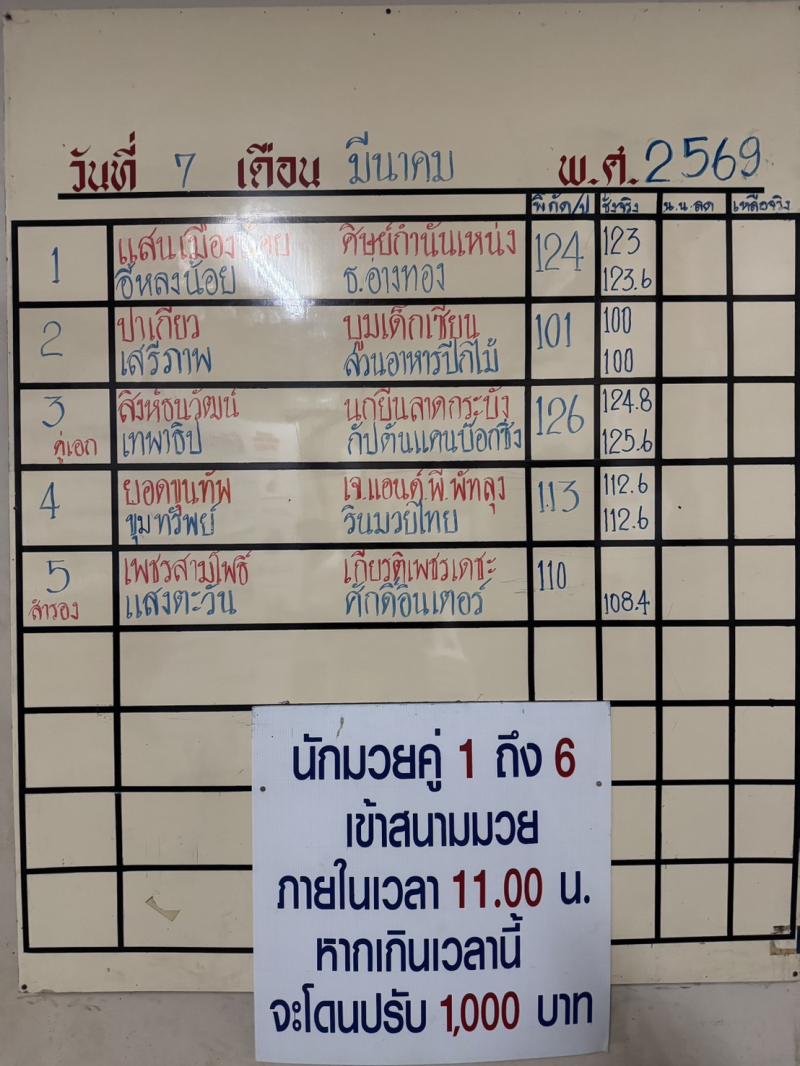 วันที่ 7 เดือน มีนาคม พ.ศ. 2569
พิกัด/ป ชั่งจริง น.น.ลด เหลือจริง
1 แสนเมืองน้อย ศิษย์กำนันเหน่ง 124 123
อีหลงน้อย ธ.อ่างทอง 123.6
2 ปาเกียว บูมเด็กเซียน 101 100
เสรีภาพ สวนอาหารปีกไม้ 100
3 สิงห์ธนวัฒน์ นกยีนลาดกระบัง 126 124.8
คู่เอก เทพาธิป กัปตันแคนบ๊อกซิ่ง 125.6
4 ยอดขุนทัพ เจ.แอนด์.พี.พัทลุง 113 112.6
ขุมทรัพย์ วินมวยไทย 112.6
5 เพชรสามโพธิ์ เกียรติเพชรเดชะ 110
สำรอง แสงตะวัน ศักดิ์อินเตอร์ 108.4
นักมวยคู่ 1 ถึง 6
เข้าสนามมวย
ภายในเวลา 11.00 น.
หากเกินเวลานี้
จะโดนปรับ 1,000 บาท